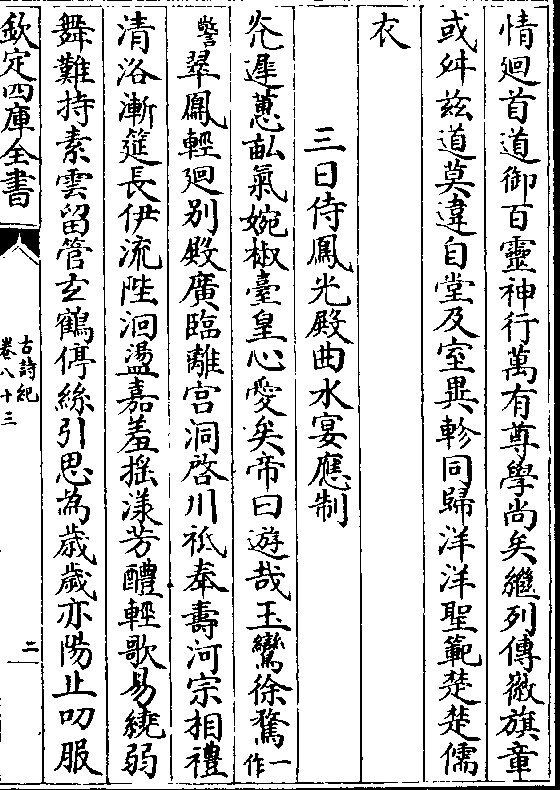 情廻首道御百靈神行萬有尊學尚矣繼列傳徽旗章
或舛兹道莫違自堂及室異軫同歸洋洋聖範楚楚儒
衣
三日侍鳳光殿曲水宴應制
光遲蕙畝氣婉椒臺皇心愛矣帝曰遊哉玉鸞徐騖一作
警翠鳳輕廻别殿廣臨離宫洞啓川祗奉壽河宗相禮
清洛漸筵長伊流陛洄盪嘉羞揺漾芳醴輕歌易繞弱
舞難持素雲留管玄鶴停絲引思為歲歲亦陽止叨服
欽定四庫全書
古詩紀
卷八十三
二